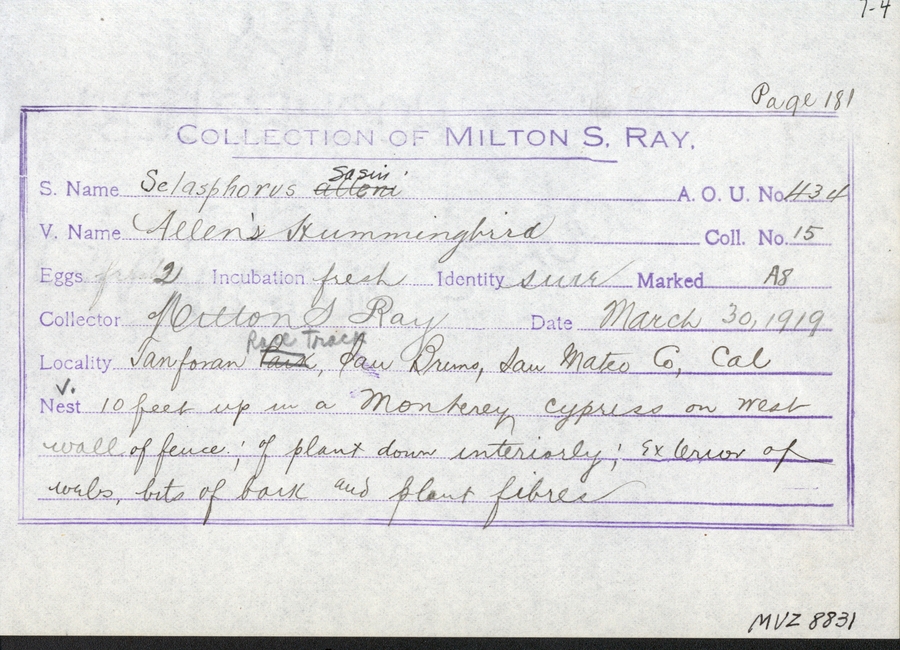 7-4
Page 181
COLLECTION OF MILTON S. RAY.
S. Name Selasphorus alleni sasin A. O. U. No. 434
V. Name Allen's Hummingbird Coll. No. 15
Eggs 2 Incubation fresh Identity sure Marked A8
Collector Milton S Ray Date March 30, 1919
Locality Tanforan Park Race Track, San Bruno, San Mateo Co, Cal
v.
Nest 10 feet up in a Monterey cypress on west
wall of fence; of plant down interiorly; exterior of
webs, bits of bark and plant fibres
MVZ 8831